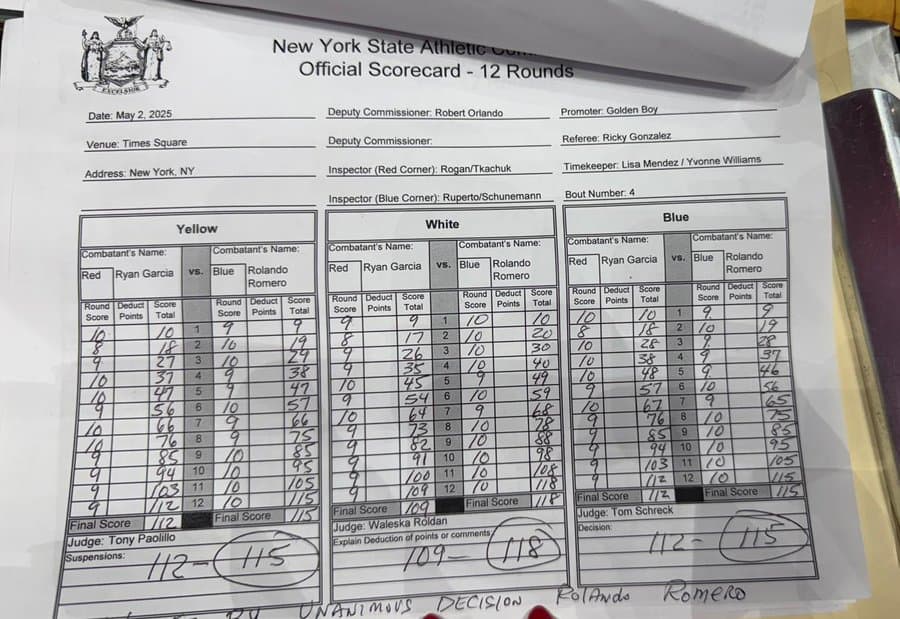 New York State Athletic
Official Scorecard - 12 Rounds
EXCELSIOR
Date: May 2, 2025 Deputy Commissioner: Robert Orlando Promoter: Golden Boy
Venue: Times Square Deputy Commissioner: Referee: Ricky Gonzalez
Address: New York, NY Inspector (Red Corner): Rogan/Tkachuk Timekeeper: Lisa Mendez / Yvonne Williams
Inspector (Blue Corner): Ruperto/Schunemann Bout Number: 4
Yellow
Combatant's Name: vs. Combatant's Name:
Red Ryan Garcia Blue Rolando Romero
Round Score Deduct Points Score Total Round Score Deduct Points Score Total
10 10 1 9 9
8 18 2 10 19
9 27 3 10 29
10 37 4 9 38
10 47 5 9 47
9 56 6 10 57
10 66 7 9 66
10 76 8 9 75
9 85 9 10 85
9 94 10 10 95
9 103 11 10 105
9 112 12 10 115
Final Score 112 Final Score 115
Judge: Tony Paolillo
Suspensions:
112 - 115
White
Combatant's Name: vs. Combatant's Name:
Red Ryan Garcia Blue Rolando Romero
Round Score Deduct Points Score Total Round Score Deduct Points Score Total
9 9 1 10 10
8 17 2 10 20
9 26 3 10 30
9 35 4 10 40
10 45 5 9 49
9 54 6 10 59
10 64 7 9 68
9 73 8 10 78
9 82 9 10 88
9 91 10 10 98
9 100 11 10 108
9 109 12 10 118
Final Score 109 Final Score 118
Judge: Waleska Roldan
Explain Deduction of points or comments:
109 - 118
Blue
Combatant's Name: vs. Combatant's Name:
Red Ryan Garcia Blue Rolando Romero
Round Score Deduct Points Score Total Round Score Deduct Points Score Total
10 10 1 9 9
8 18 2 10 19
10 28 3 9 28
10 38 4 9 37
10 48 5 9 46
9 57 6 10 56
10 67 7 9 65
9 76 8 10 75
9 85 9 10 85
9 94 10 10 95
9 103 11 10 105
9 112 12 10 115
Final Score 112 Final Score 115
Judge: Tom Schreck
Decision:
112 - 115
BY UNANIMOUS DECISION ROLANDO ROMERO